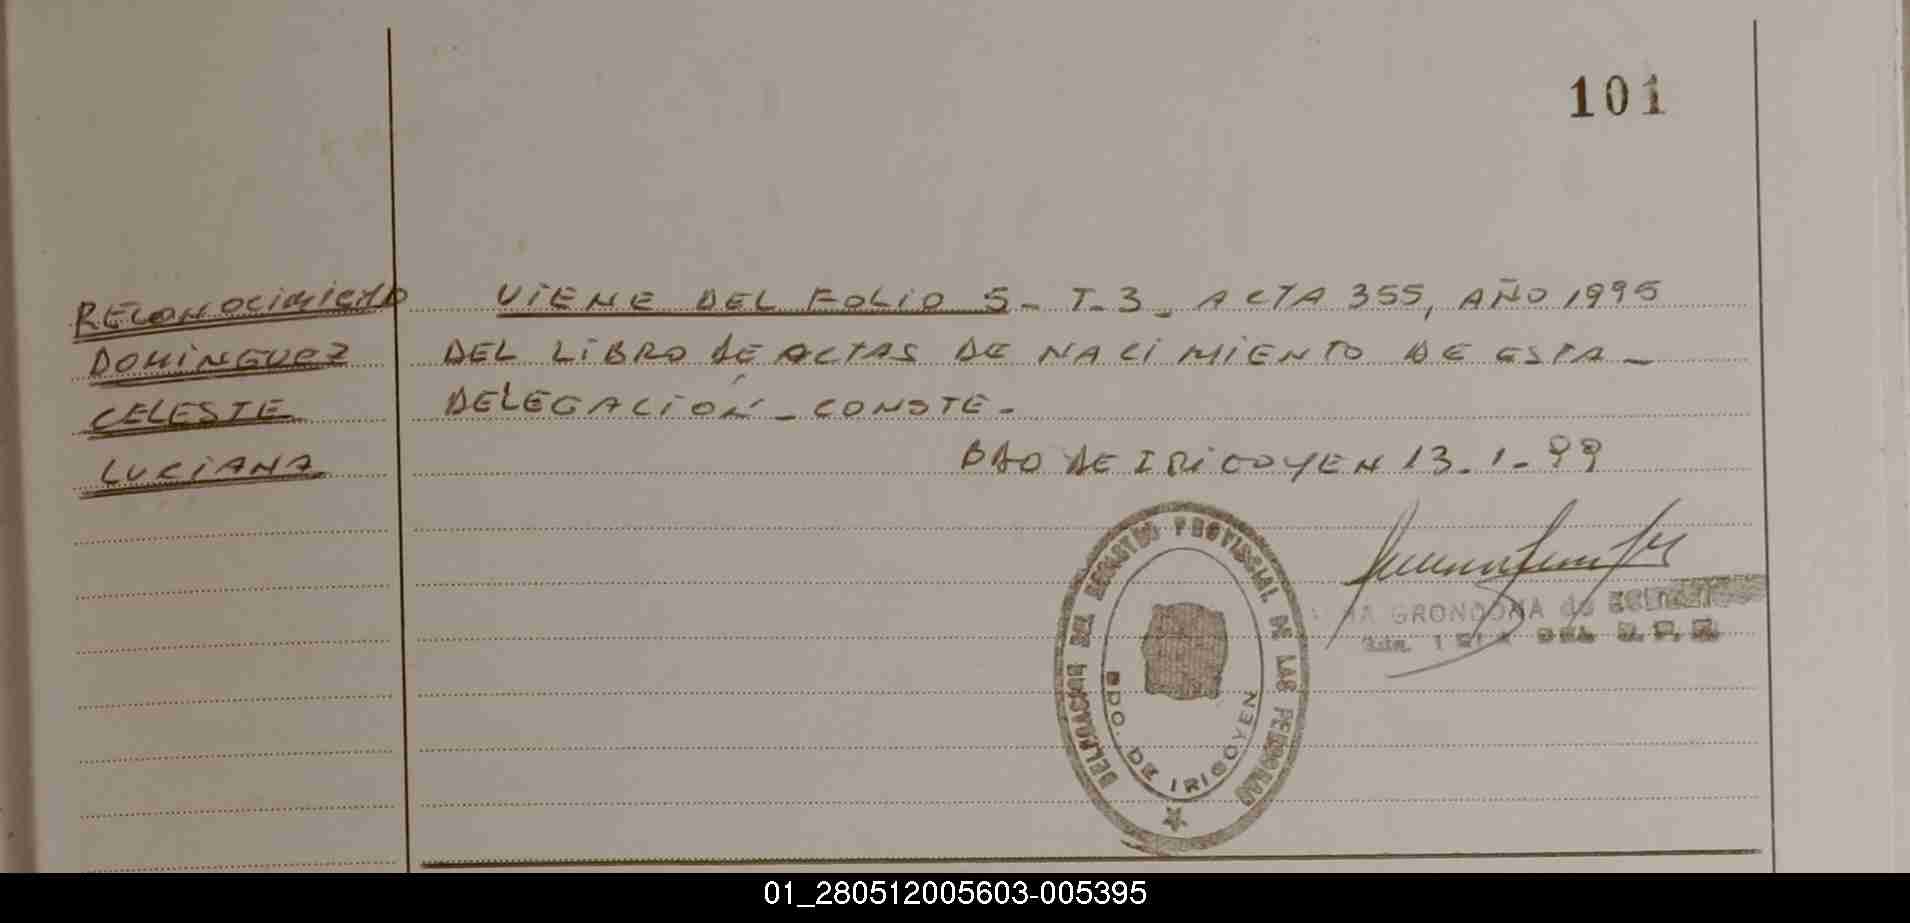 101
RECONOCIMIENTO
DOMINGUEZ
CELESTE
LUCIANA
VIENE DEL FOLIO 5- T-3- ACTA 355, AÑO 1995
DEL LIBRO DE ACTAS DE NACIMIENTO DE ESTA -
DELEGACIÓN - CONSTE -
BDO DE IRIGOYEN 13-1-99
DELEGACION DEL REGISTRO PROVINCIAL DE LAS PERSONAS
BDO. DE IRIGOYEN
GRONDONA de
DEL R.P.P.
01_280512005603-005395